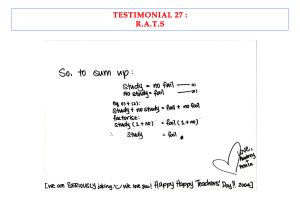 TESTIMONIAL 27 :
R.A.T.S
So, to sum up:
study = no fail — (1)
No study = fail — (2)
eq (1) + (2):
study + no study = fail + no fail
factorise:
study (1 + no) = fail (1 + no)
∴ study = fail
love,
[We are SERIOUSLY joking We love you! Happy Happy Teachers' Day!! 2004]